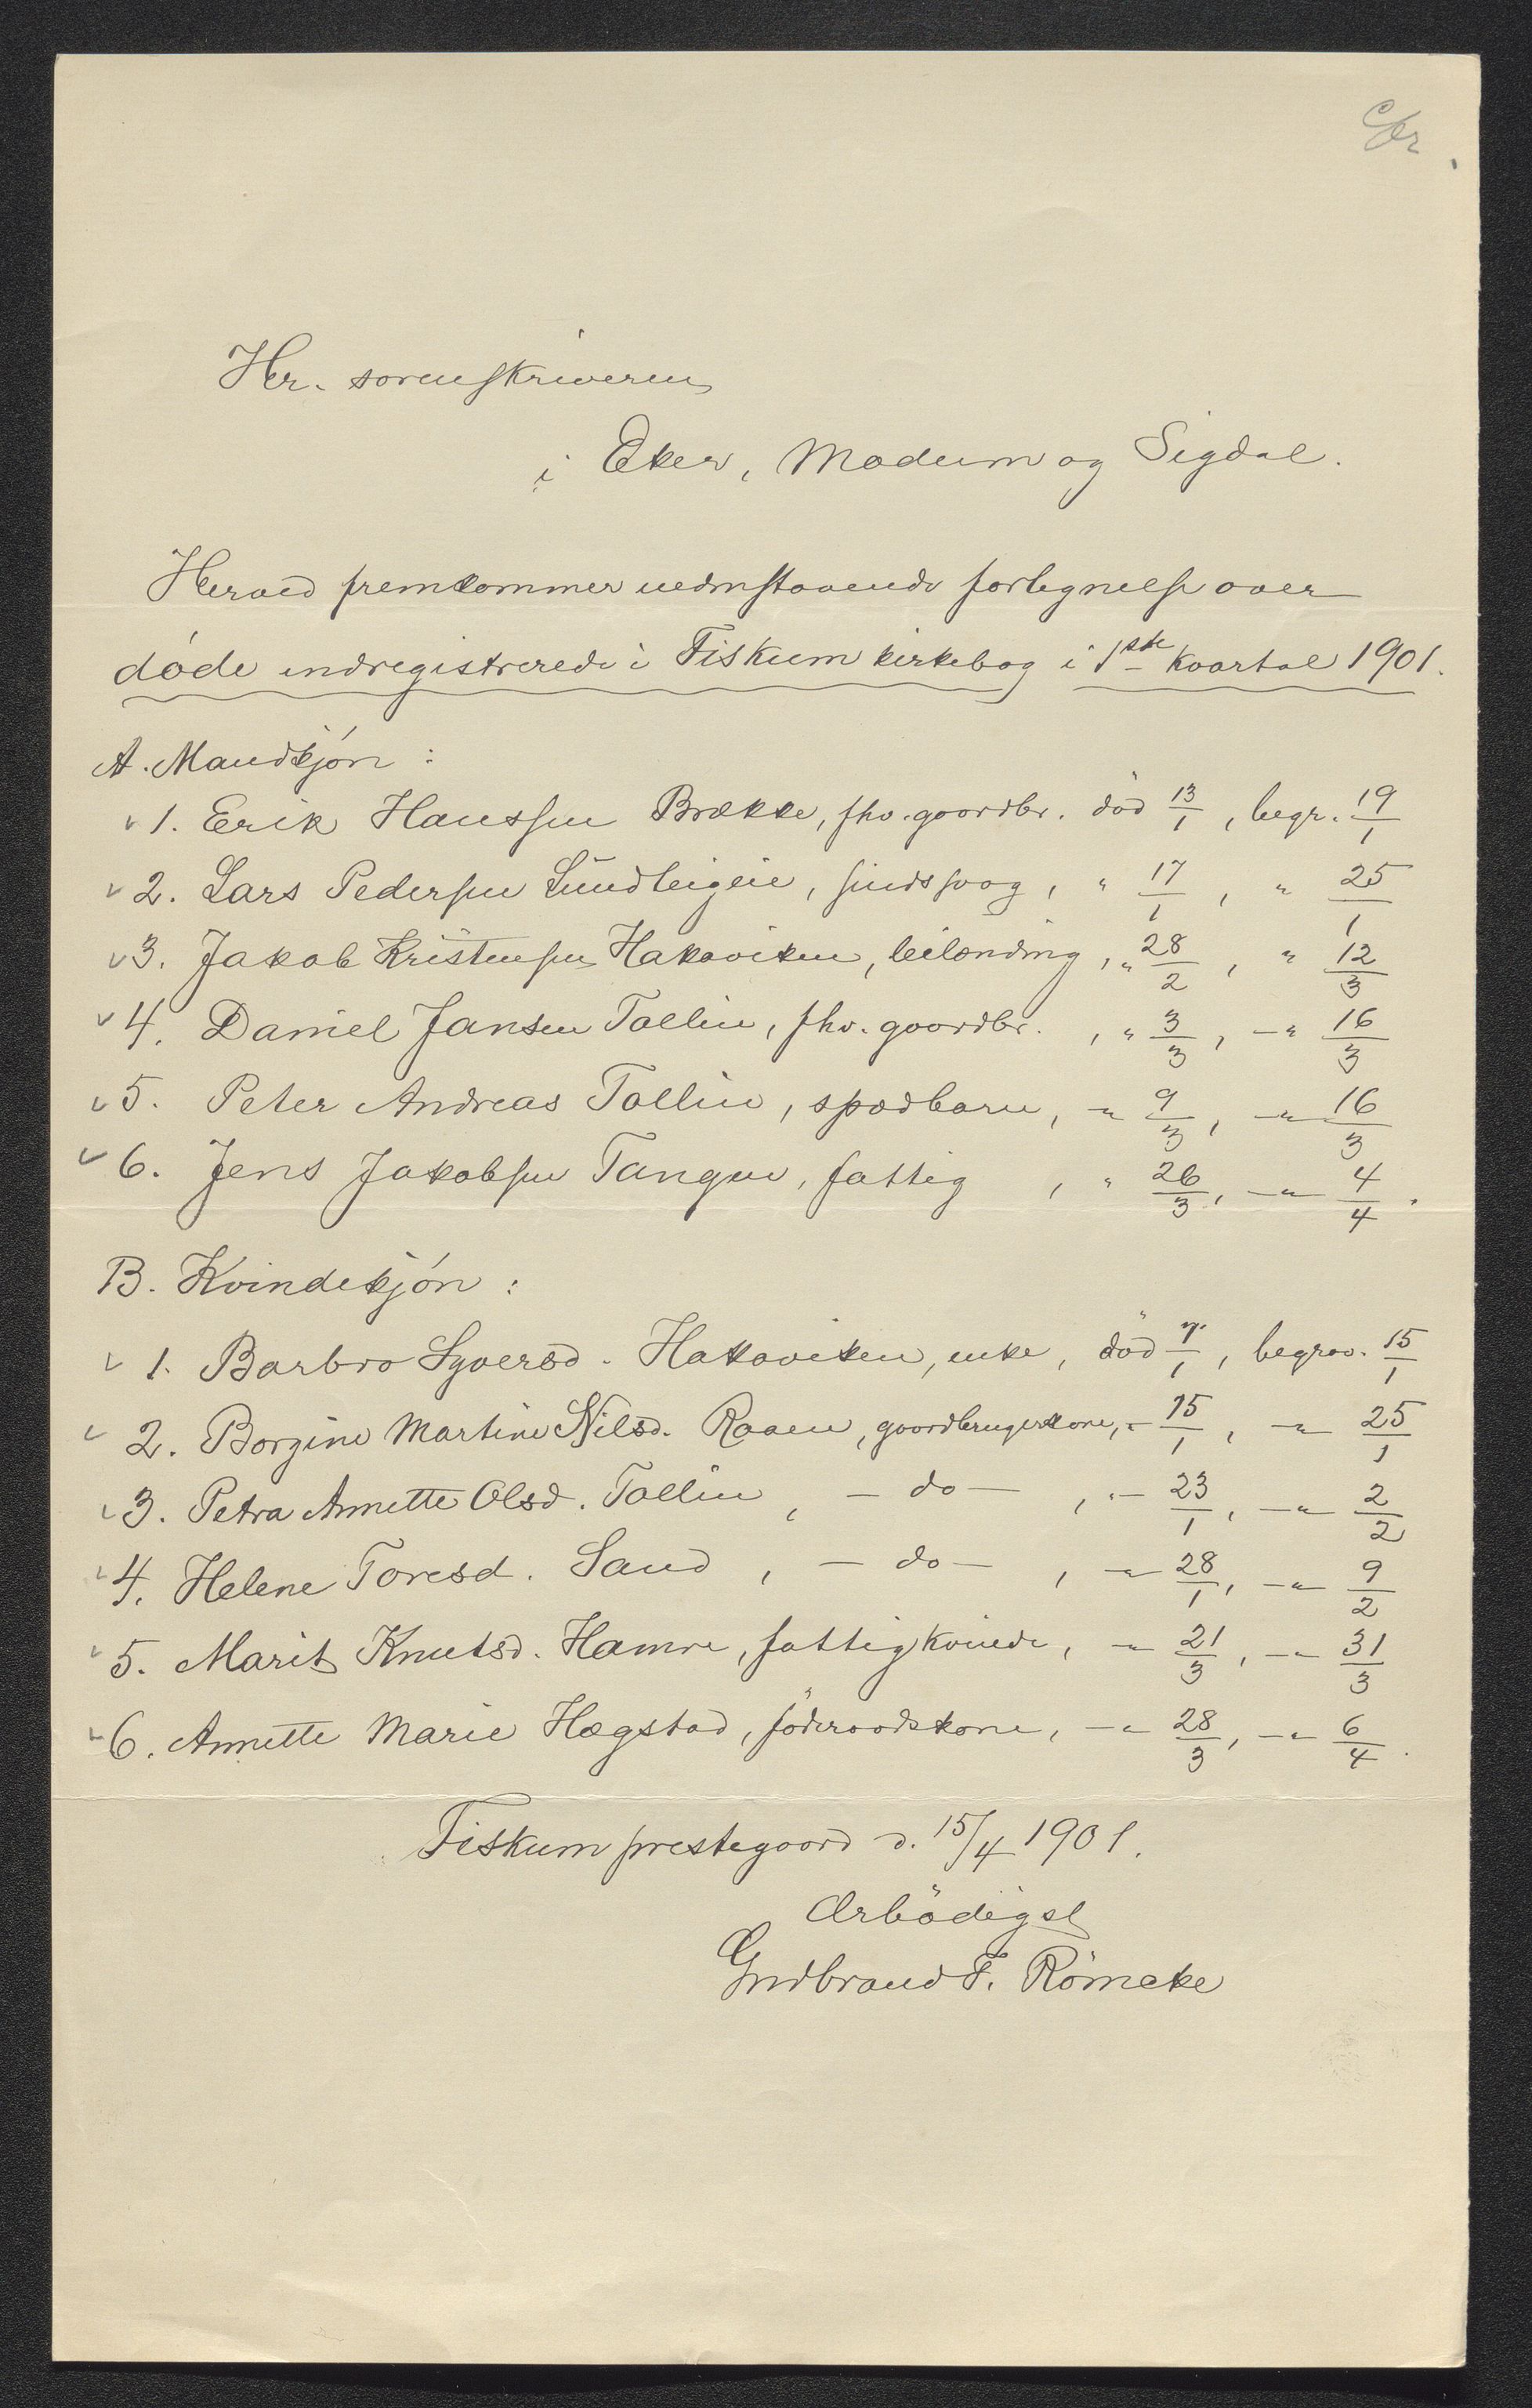 Hr. sorenskriveren
i Eker, Modum og Sigdal.
Herved fremkommer nedenstaaende fortegnelse over
døde indregistrerede i Fiskum kirkebog i 1ste kvartal 1901.
A. Mandkjøn :
1. Erik Hanssen Brække, fhv. gaardbr. død 13/1, begr. 19/1
2. Lars Pedersen Sundleigeie, sindssvag, " 17/1, " 25/1
3. Jakob Kristensen Hakaviken, leilænding, " 28/2, " 12/3
4. Daniel Jansen Tollin, fhv. gaardbr. , " 3/3, -" 16/3
5. Peter Andreas Tollin, spædbarn, -" 9/3, -"- 16/3
6. Jens Jakobsen Tangen, fattig , " 26/3, -"- 4/4.
B. Kvindekjøn :
1. Barbro Syversd. Hakaviken, enke, død 7/1, begrav. 15/1
2. Borgine Martine Nilsd. Raaen, gaardbrugerkone, " 15/1, -" 25/1
3. Petra Annette Olsd. Tollin, - do - , "- 23/1, -"- 2/2
4. Helene Toresd. Sand, - do - , -"- 28/1, -"- 9/2
5. Marit Knutsd. Hamre, fattigkvinde, -" 21/3, -"- 31/3
6. Annette Marie Hægstad, føderaadskone, -" 28/3, -"- 6/4.
Fiskum prestegaard d. 15/4 1901.
Ærbødigst
Gudbrand F. Römcke